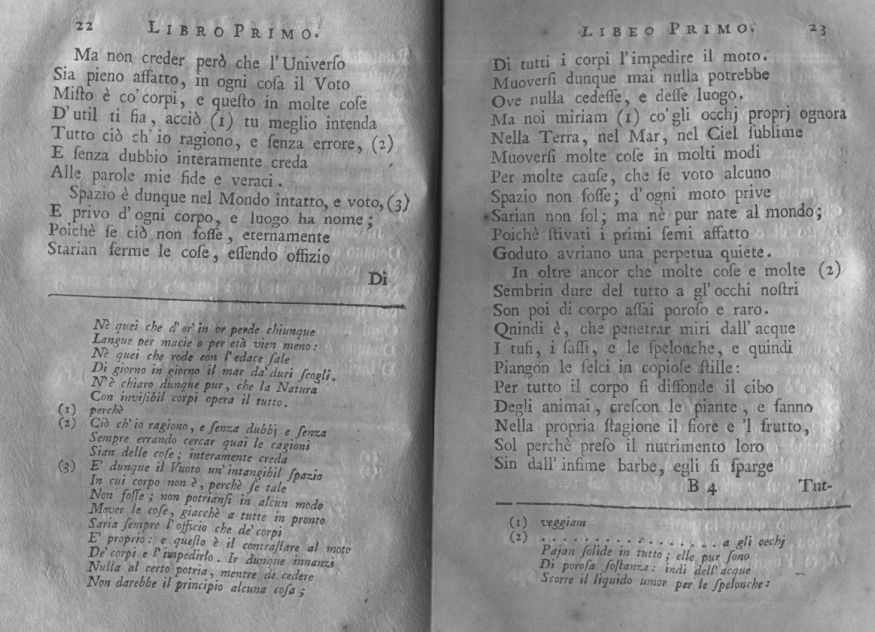 22 LIBRO PRIMO.
Ma non creder però che l'Univerſo
Sia pieno affatto, in ogni coſa il Voto
Miſto è co'corpi, e queſto in molte coſe
D'util ti fia, acciò (1) tu meglio intenda
Tutto ciò ch'io ragiono, e ſenza errore, (2)
E ſenza dubbio interamente creda
Alle parole mie fide e veraci.
Spazio è dunque nel Mondo intatto, e voto, (3)
E privo d'ogni corpo, e luogo ha nome;
Poichè ſe ciò non foſſe, eternamente
Starian ferme le coſe, eſſendo offizio
Di
Nè quei che d'or'in or perde chiunque
Langue per macie o per età vien meno:
Nè quei che rode con l'edace ſale
Di giorno in giorno il mar da'duri ſcogli.
N'è chiaro dunque pur, che la Natura
Con inviſibil corpi opera il tutto.
(1) perchè
(2) Ciò ch'io ragiono, e ſenza dubbj e ſenza
Sempre errando cercar quai le cagioni
Sian delle coſe; interamente creda
(3) E' dunque il Vuoto un'intangibil ſpazio
In cui corpo non è, perchè ſe tale
Non foſſe; non potrianſi in alcun modo
Mover le coſe, giacchè a tutte in pronto
Saria ſempre l'officio che de'corpi
E' proprio: e queſto è il contraſtare al moto
De'corpi e l'impedirlo. Ir dunque innanzi
Nulla al certo potria, mentre di cedere
Non darebbe il principio alcuna coſa;
LIBEO PRIMO. 23
Di tutti i corpi l'impedire il moto.
Muoverſi dunque mai nulla potrebbe
Ove nulla cedeſſe, e deſſe luogo.
Ma noi miriam (1) co'gli occhj proprj ognora
Nella Terra, nel Mar, nel Ciel ſublime
Muoverſi molte coſe in molti modi
Per molte cauſe, che ſe voto alcuno
Spazio non foſſe; d'ogni moto prive
Sarian non ſol; ma nè pur nate al mondo;
Poichè ſtivati i primi ſemi affatto
Goduto avriano una perpetua quiete.
In oltre ancor che molte coſe e molte (2)
Sembrin dure del tutto a gl'occhi noſtri
Son poi di corpo aſſai poroſo e raro.
Qnindi è, che penetrar miri dall'acque
I tufi, i ſaſſi, e le ſpelonche, e quindi
Piangon le ſelci in copioſe ſtille:
Per tutto il corpo ſi diffonde il cibo
Degli animai, creſcon le piante, e fanno
Nella propria ſtagione il fiore e 'l frutto,
Sol perchè preſo il nutrimento loro
Sin dall'infime barbe, egli ſi ſparge
B 4 Tut-
(1) veggiam
(2) . . . . . . . . . . . . . . . . . a gli occhj
Pajan ſolide in tutto; elle pur ſono
Di poroſa ſoſtanza: indi dell'acque
Scorre il liquido umor per le ſpelonche: